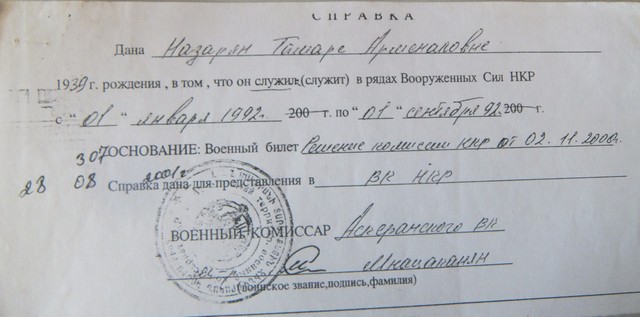 СПРАВКА
Дана Назарян Тамаре Арменаковне
1939 г. рождения, в том, что он служил (служит) в рядах Вооруженных Сил НКР
с "01" января 1992. 200 г. по "01" сентября 92. 200 г.
307
ОСНОВАНИЕ: Военный билет Решение комиссии НКР от 02.11.2000г.
28 08 2001г
Справка дана для представления в ВК НКР
ВОЕННЫЙ КОМИССАР Аскеранского ВК
Мнацаканян
(воинское звание, подпись, фамилия)